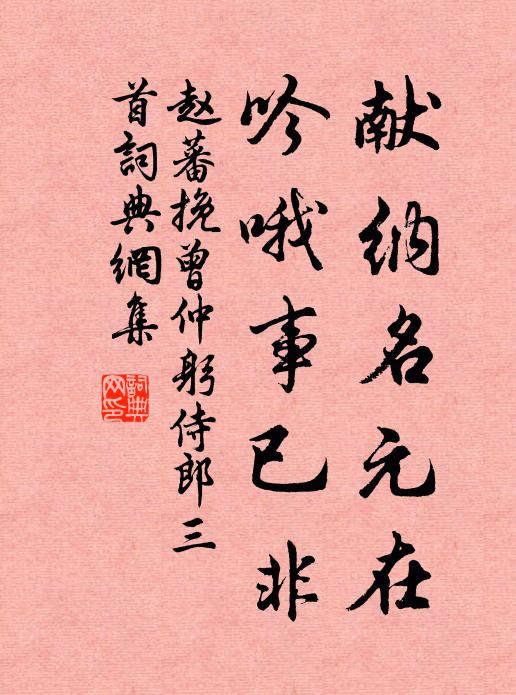 献纳名元在
吟哦事已非
赵蕃挽曾仲躬侍郎三
首詞典網集
詞典
网印